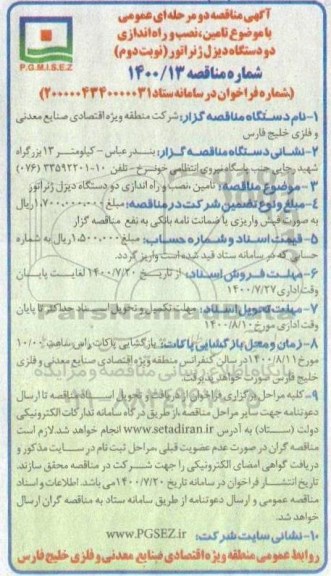 آگهی مناقصه دو مرحله‌ای عمومی
با موضوع تامین، نصب و راه اندازی
دو دستگاه دیزل ژنراتور (نوبت دوم)
شماره مناقصه ۱۴۰۰/۱۳
(شماره فراخوان در سامانه ستاد ۲۰۰۰۰۰۴۳۴۰۰۰۰۰۳۱)
P.G.M.I.S.E.Z
۱- نام دستگاه مناقصه گزار: شرکت منطقه ویژه اقتصادی صنایع معدنی و
فلزی خلیج فارس
۲- نشانی دستگاه مناقصه گزار: بندرعباس - کیلومتر ۱۳ بزرگراه
شهید رجایی جنب پاسگاه نیروی انتظامی خونسرخ - تلفن ۱۰-۳۳۵۹۲۲۰۱ (۰۷۶)
۳- موضوع مناقصه: تأمین، نصب و راه اندازی دو دستگاه دیزل ژنراتور
۴- مبلغ و نوع تضمین شرکت در مناقصه: مبلغ ۱،۷۰۰،۰۰۰،۰۰۰ ریال
به صورت فیش واریزی یا ضمانت نامه بانکی به نفع مناقصه گزار
۵- قیمت اسناد و شماره حساب: مبلغ ۱،۵۰۰،۰۰۰ ریال به شماره
حسابی که در سامانه ستاد قید شده است واریز گردد.
۶- مهلت فروش اسناد: از تاریخ ۱۴۰۰/۷/۲۰ لغایت پایان
وقت اداری ۱۴۰۰/۷/۲۷
۷- مهلت تحویل اسناد: مهلت تکمیل و تحویل اسناد حداکثر تا پایان
وقت اداری مورخ ۱۴۰۰/۸/۱۰
۸- زمان و محل بازگشایی پاکات: بازگشایی پاکات راس ساعت ۱۰:۰۰
مورخ ۱۴۰۰/۸/۱۱ در سالن کنفرانس منطقه ویژه اقتصادی صنایع معدنی و فلزی
خلیج فارس صورت خواهد پذیرفت.
۹- کلیه مراحل برگزاری فراخوان از دریافت و تحویل اسناد مناقصه تا ارسال
دعوتنامه جهت سایر مراحل مناقصه، از طریق درگاه سامانه تدارکات الکترونیکی
دولت (ستاد) به آدرس www.setadiran.ir انجام خواهد شد. لازم است
مناقصه گران در صورت عدم عضویت قبلی، مراحل ثبت نام در سایت مذکور و
دریافت گواهی امضای الکترونیکی را جهت شرکت در مناقصه محقق سازند.
تاریخ انتشار فراخوان در سامانه تاریخ ۱۴۰۰/۷/۲۰ می باشد. اطلاعات و اسناد
مناقصه عمومی و ارسال دعوتنامه از طریق سامانه ستاد به مناقصه گران ارسال
خواهد شد.
۱۰- نشانی سایت شرکت: www.PGSEZ.ir
روابط عمومی منطقه ویژه اقتصادی صنایع معدنی و فلزی خلیج فارس